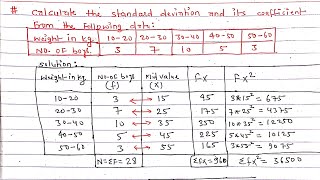 # Calculate the standard deviation and its coefficient
from the following data:
Weight in kg 10-20 20-30 30-40 40-50 50-60
No. of boys 3 7 10 5 3
Solution:
Weight in kg No of boys (f) Mid value (X) fx fx²
10-20 3 15 45 3*15² = 675
20-30 7 25 175 7*25² = 4375
30-40 10 35 350 10*35² = 12250
40-50 5 45 225 5*45² = 10125
50-60 3 55 165 3*55² = 9075
N=Σf= 28 Σfx=960 Σfx² = 36500